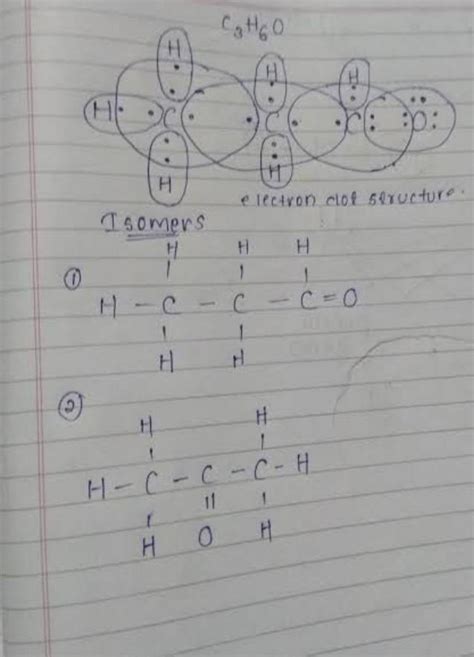 C3H6O
H H H
H C C C O
H H
electron dot structure.
Isomers
①
H H H
H - C - C - C = O
H H
②
H H
H - C - C - C - H
H O H